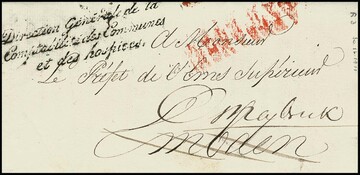 Direction Générale de la
Comptabilité des Communes
et des hospices.
A Monsieur
Le Préfet de l'Ems Supérieur
Osnabruk
Emden